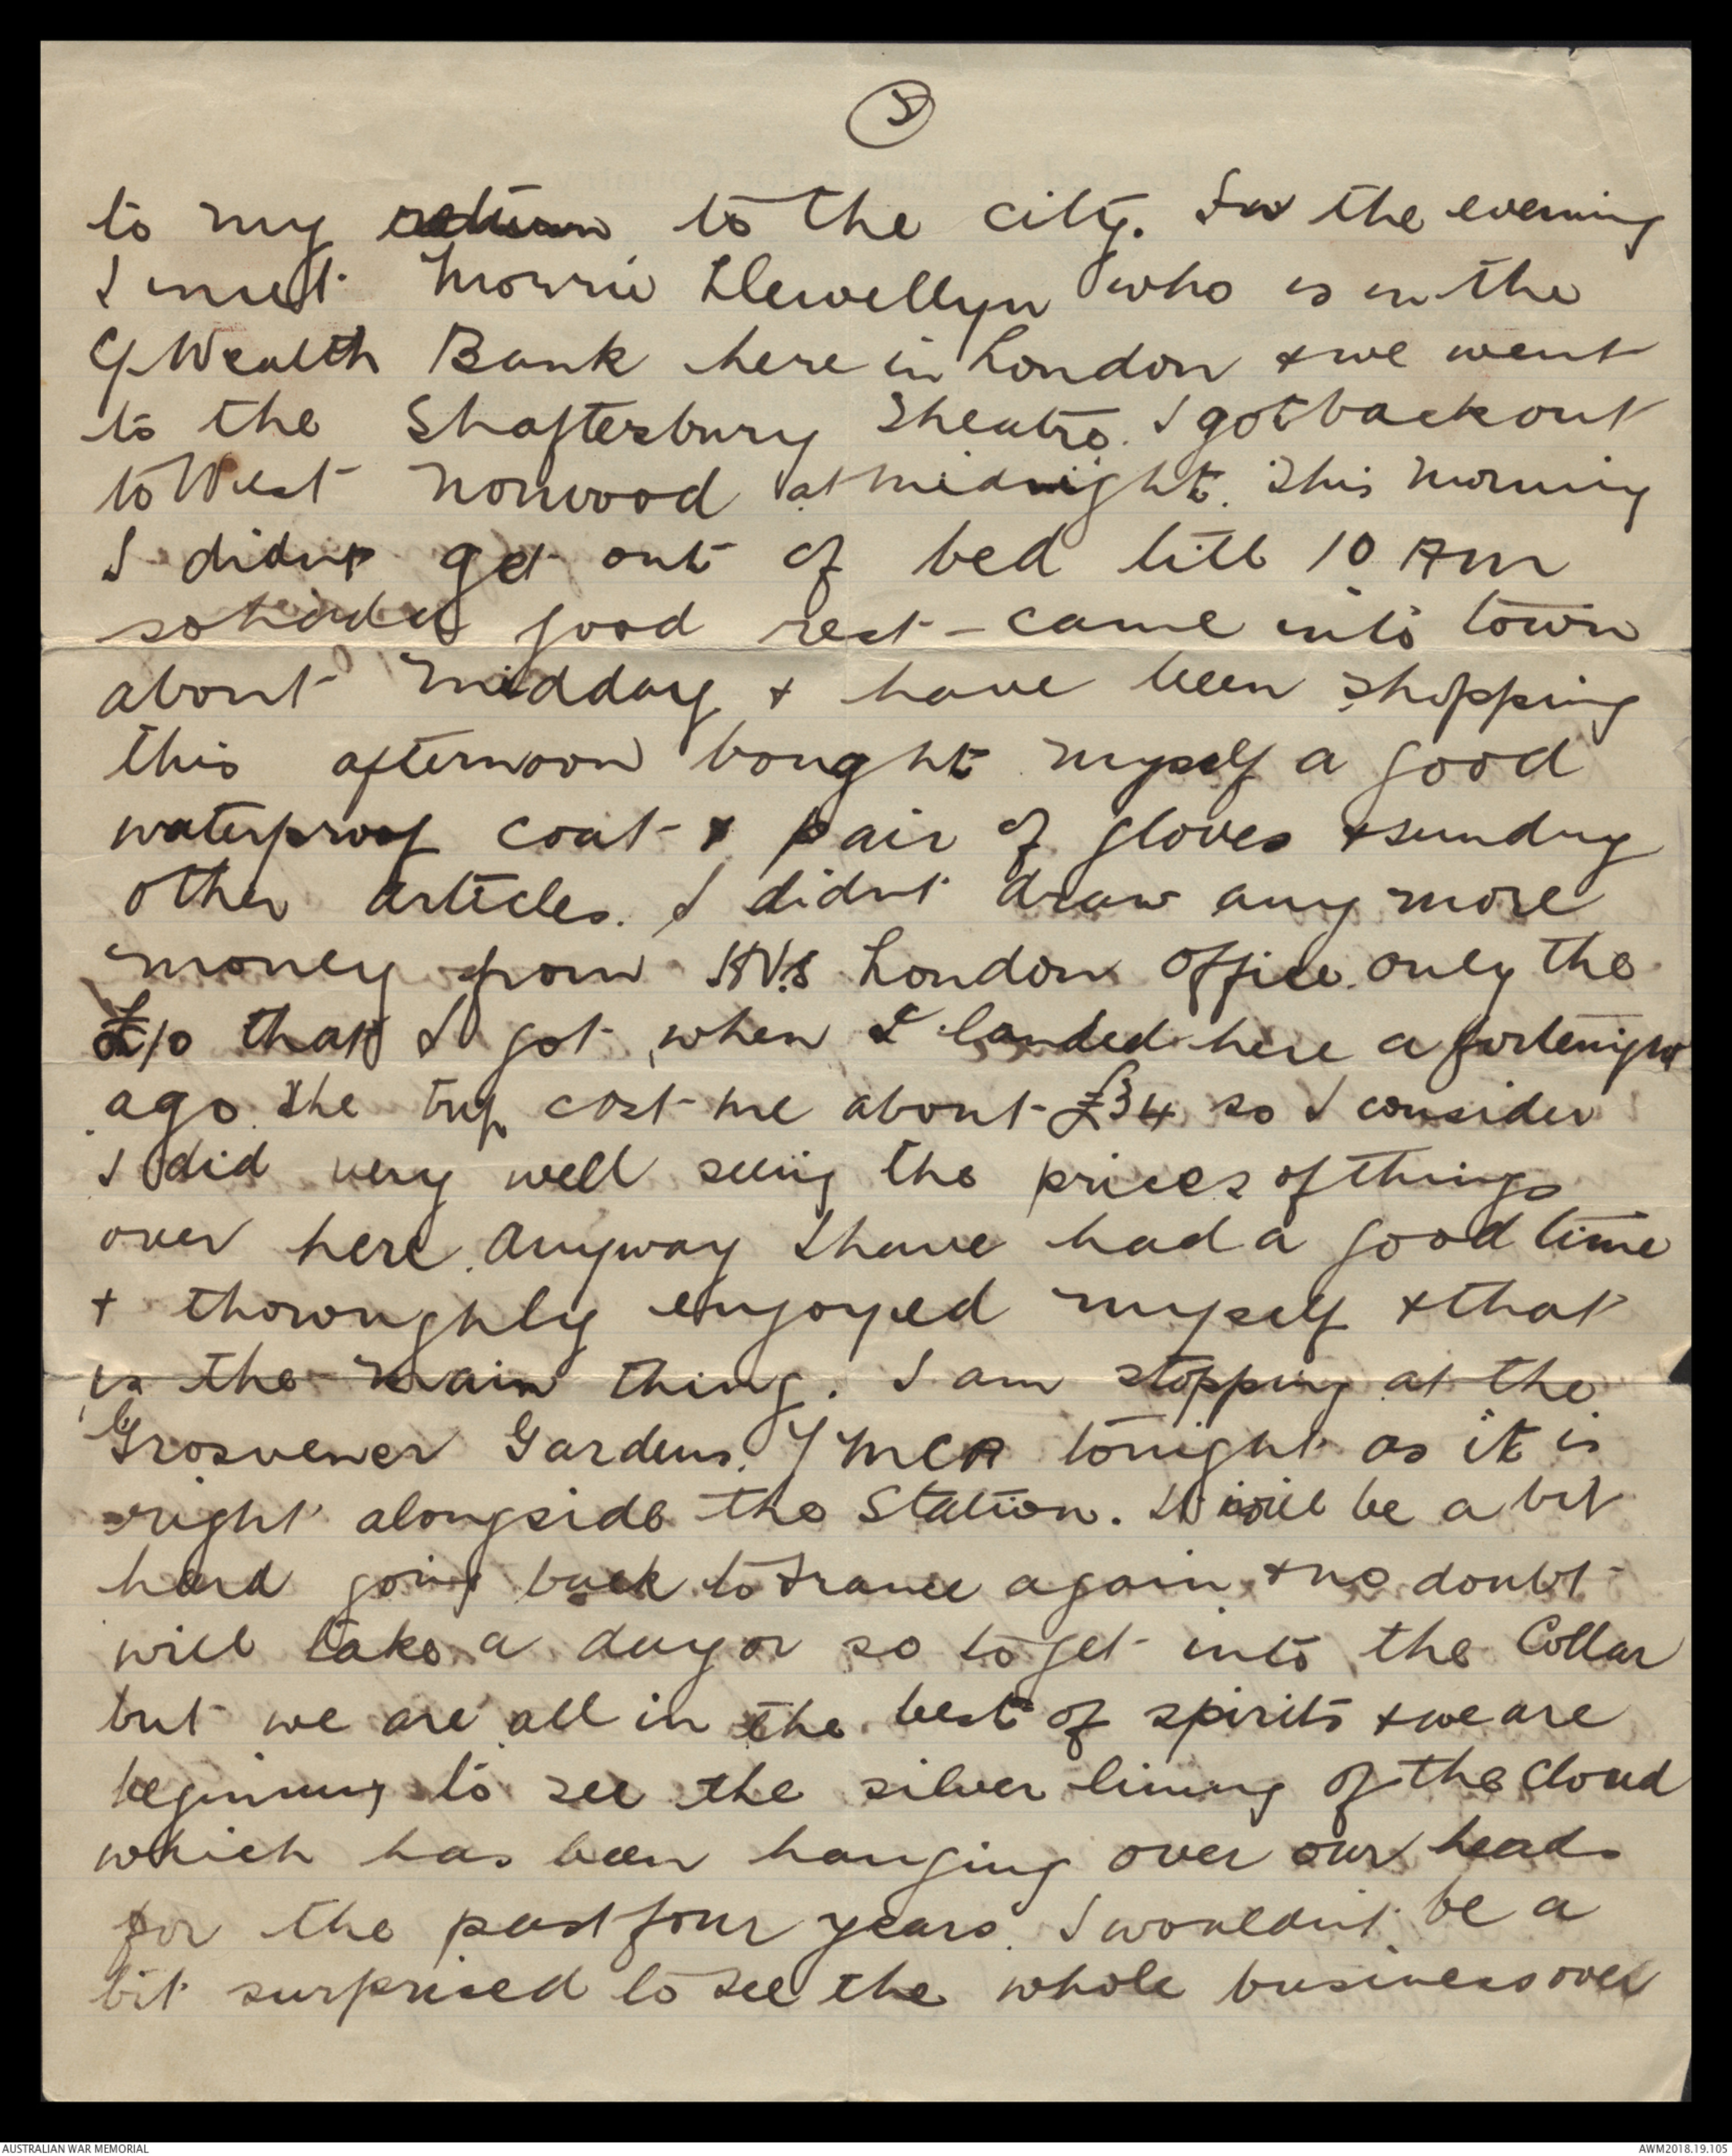 5
to my return to the city. In the evening
I met Morrie Llewellyn who is in the
C/Wealth Bank here in London & we went
to the Shaftesbury Theatre. I got back out
to West Norwood at midnight. This morning
I didnt get out of bed till 10 Am
so had a good rest - came into town
about midday & have been shopping
this afternoon bought myself a good
waterproof coat & pair of gloves & sundry
other articles. I didnt draw any more
money from London Office. only the
£10 that I got when I landed here a fortenight
ago. The trip cost me about £34 so I consider
I did very well seeing the prices of things
over here. Anyway I have had a good time
& thoroughly enjoyed myself & that
is the main thing. I am stopping at the
Grosvener Gardens. YMCA tonight as it is
right alongside the Station. It will be a bit
hard going back to France again & no doubt
will take a day or so to get into the Collar
but we are all in the best of spirits & we are
beginning to see the silver lining of the cloud
which has been hanging over our heads
for the past four years. I wouldnt be a
bit surprised to see the whole business over
AUSTRALIAN WAR MEMORIAL
AWM2018.19.105